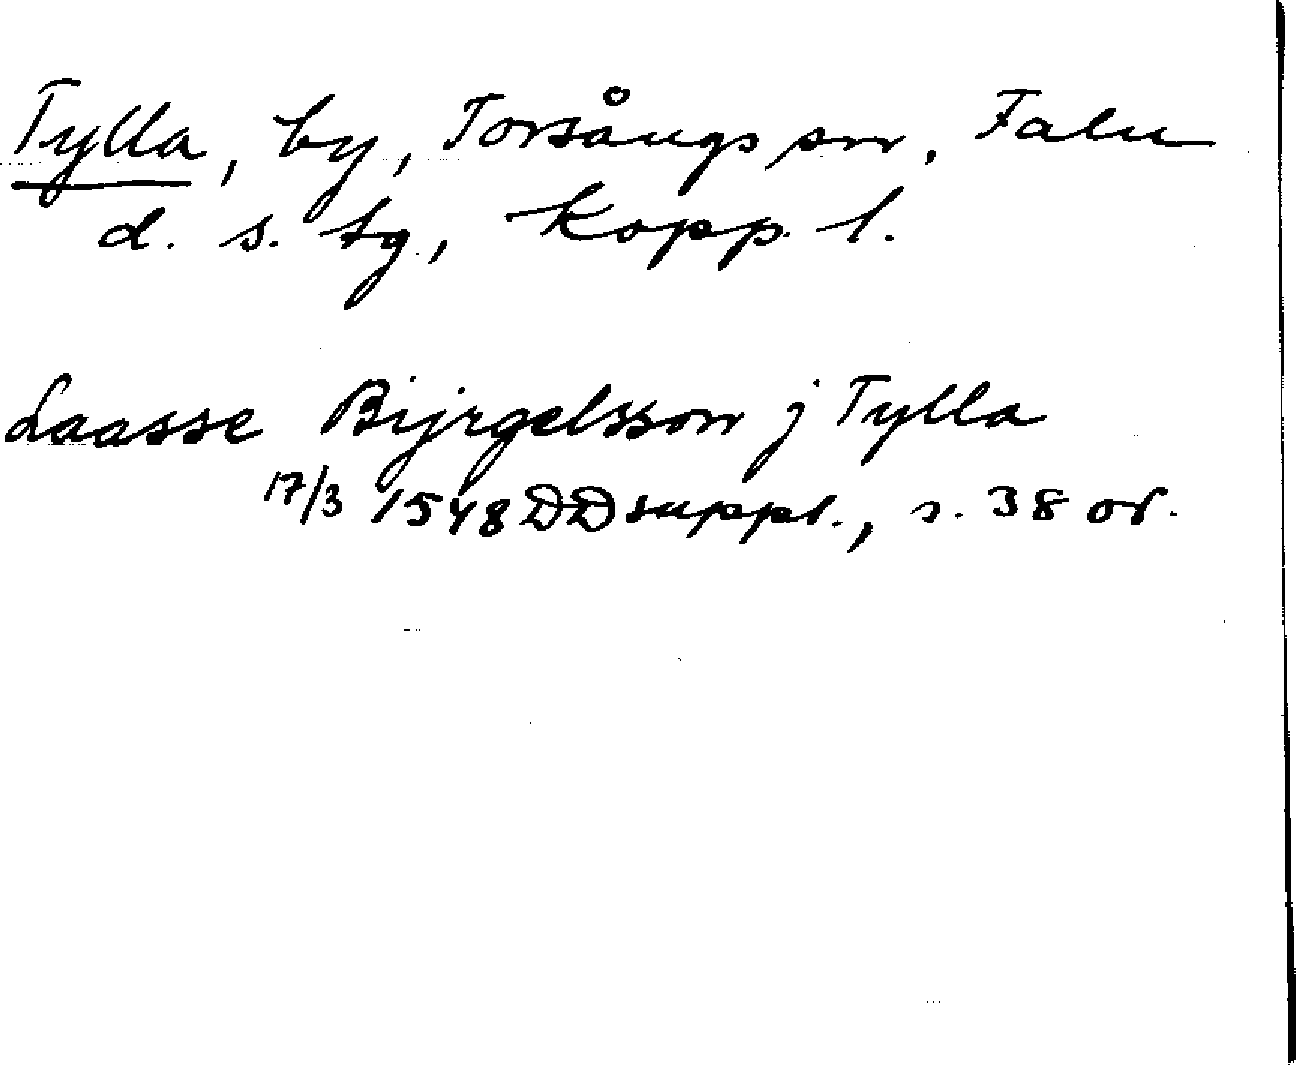 Tylla, by, Torsångs sn, Falu
d. s. tg, Kopp. l.
Laasse Bijrgelsson j Tylla
17/3 1548 DD suppl., s. 38 or.